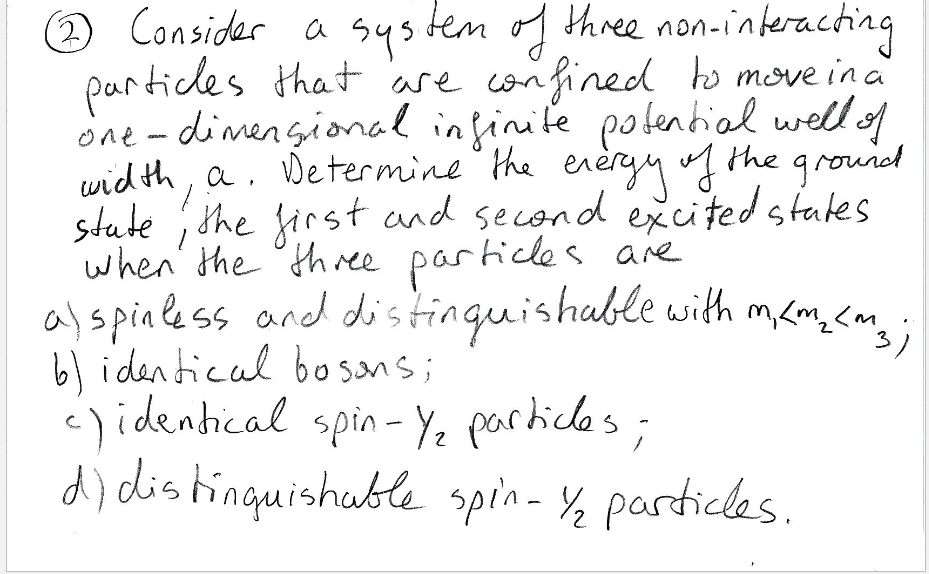 ② Consider a system of three non-interacting
particles that are confined to move in a
one-dimensional infinite potential well of
width, a. Determine the energy of the ground
state, the first and second excited states
when the three particles are
a) spinless and distinguishable with m₁<m₂<m₃;
b) identical bosons;
c) identical spin-½ particles;
d) distinguishable spin-½ particles.